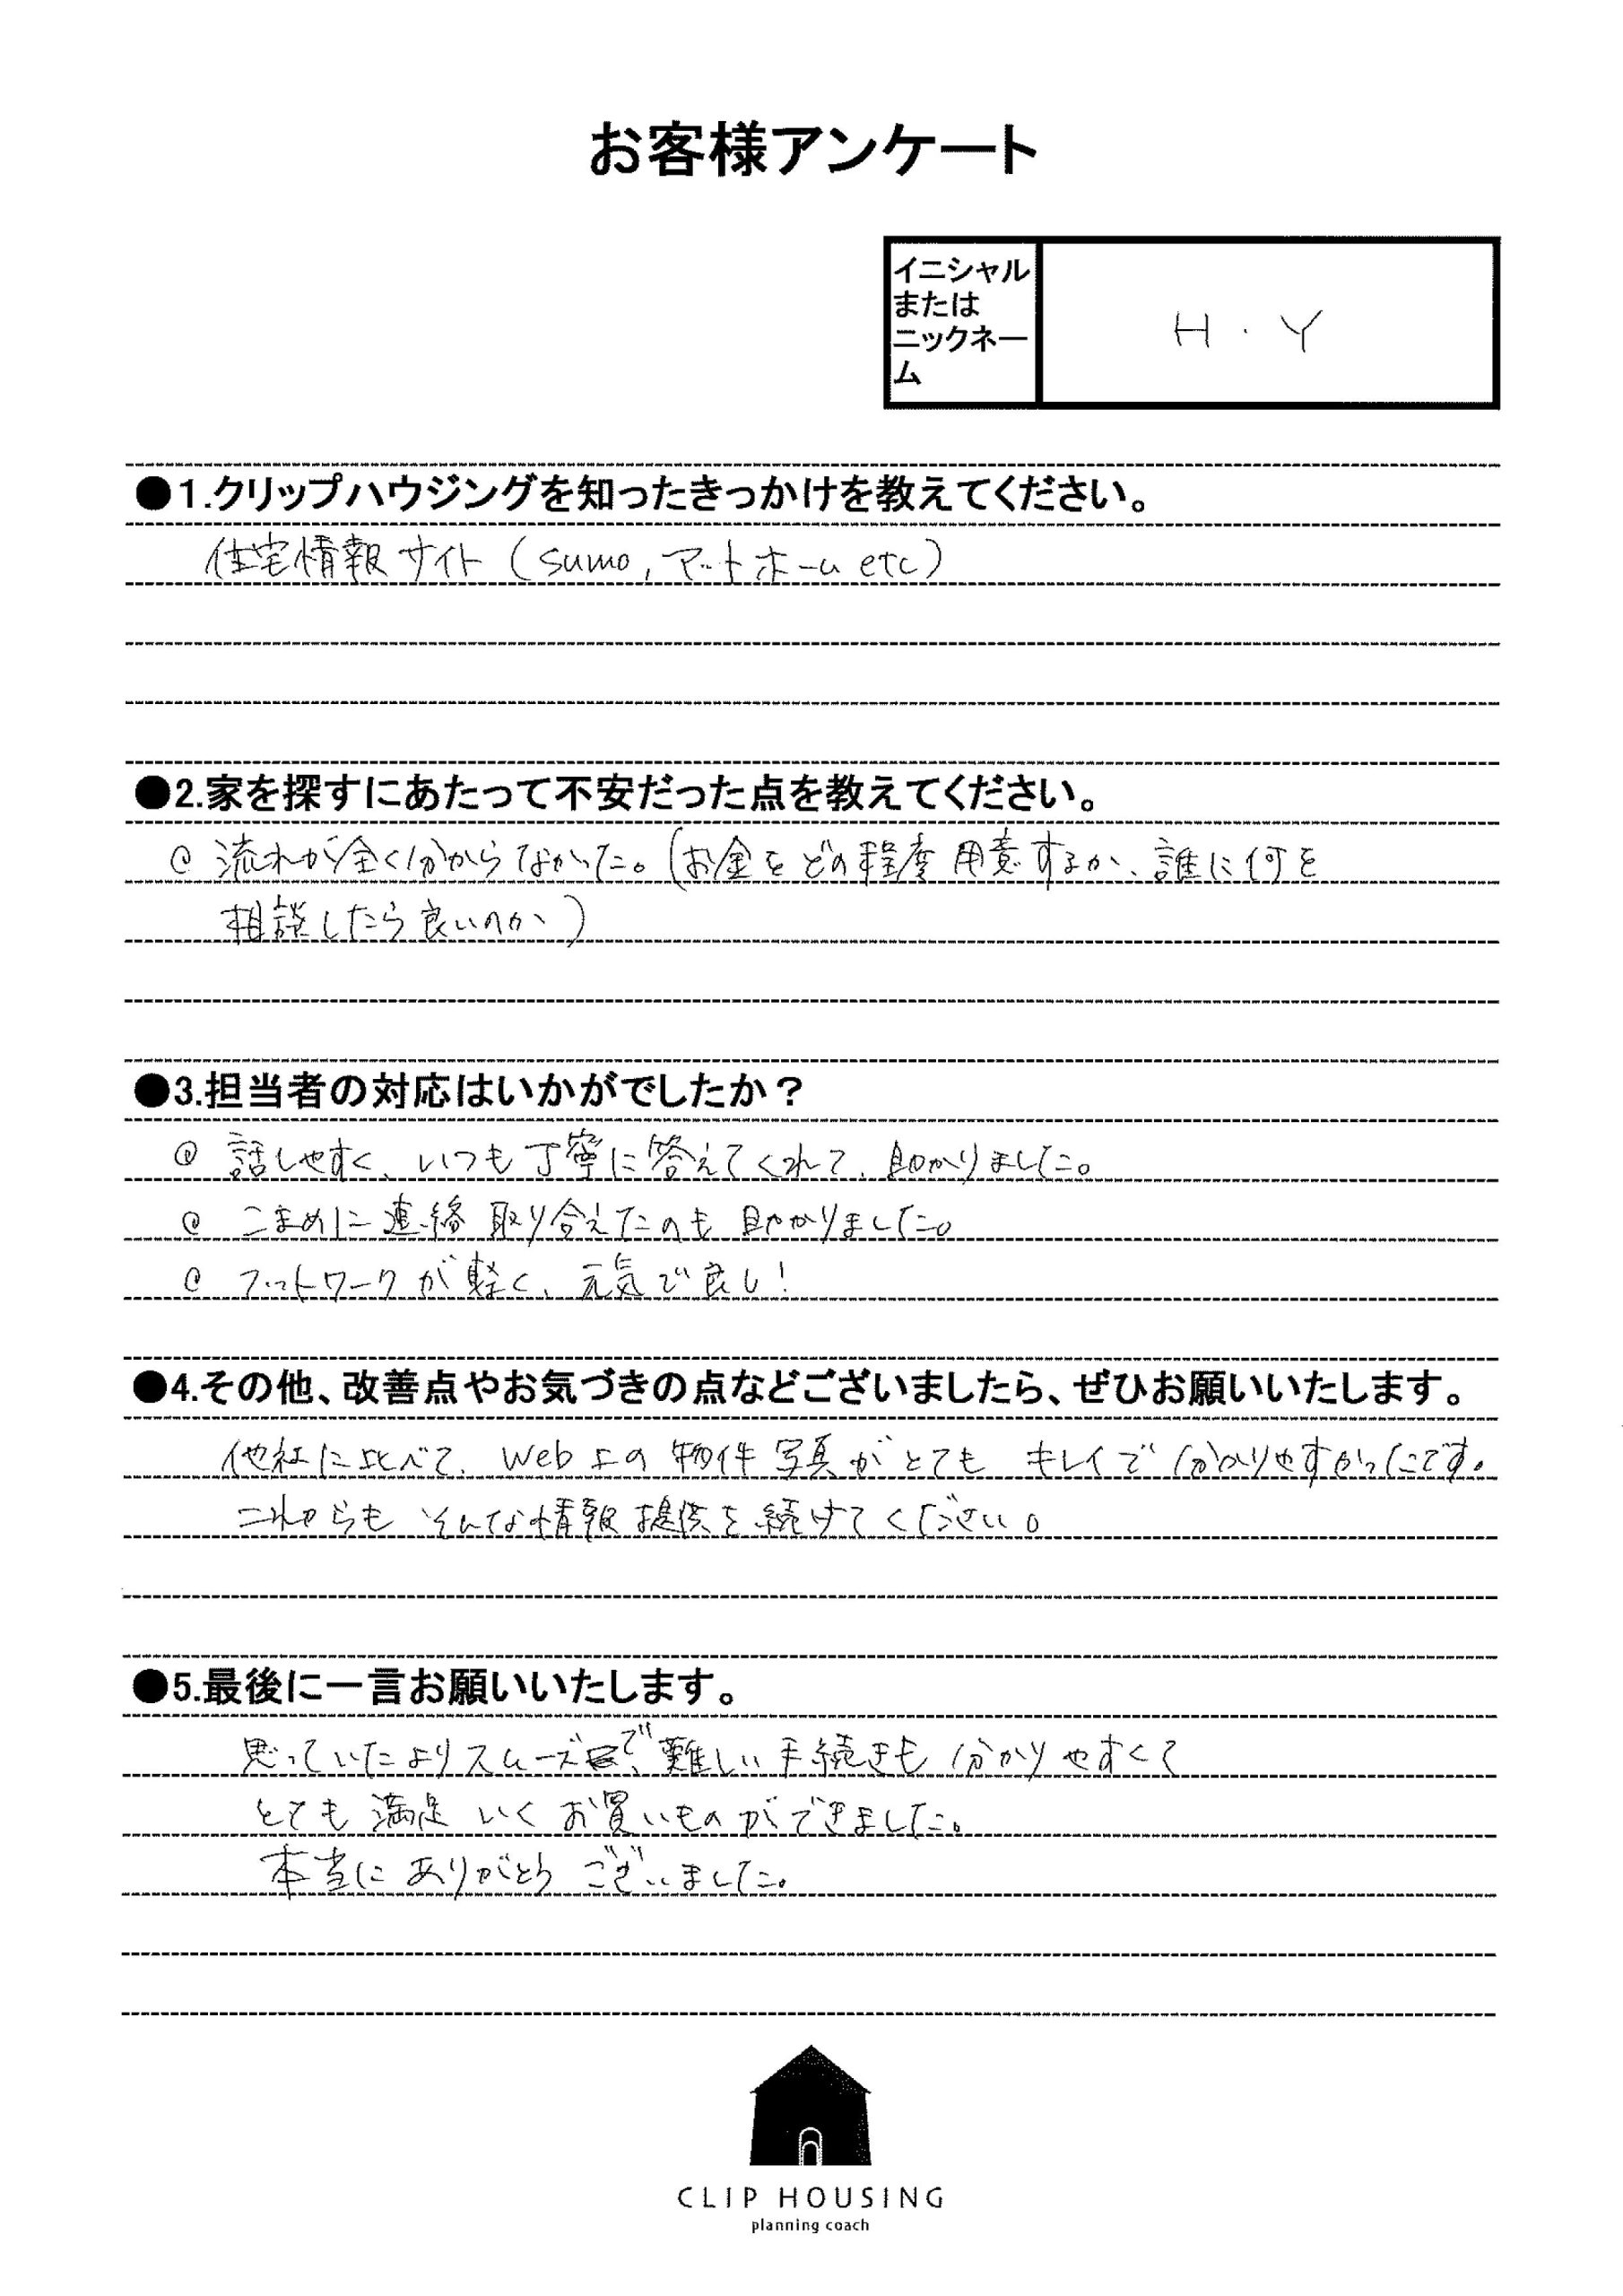 お客様アンケート
イニシャル
または
ニックネー
ム
H・Y
●1.クリップハウジングを知ったきっかけを教えてください。
住宅情報サイト(sumo,アットホームetc)
●2.家を探すにあたって不安だった点を教えてください。
@ 流れが全く分からなかった。(お金をどの程度用意するか、誰に何を
相談したら良いのか)
●3.担当者の対応はいかがでしたか？
@ 話しやすく、いつも丁寧に答えてくれて、助かりました。
@ こまめに連絡取り合えたのも助かりました。
@ フットワークが軽く、元気で良し!
●4.その他、改善点やお気づきの点などございましたら、ぜひお願いいたします。
他社に比べて、Web上の物件写真がとてもキレイで分かりやすかったです。
これからもそんな情報提供を続けてください。
●5.最後に一言お願いいたします。
思っていたよりスムーズで、難しい手続きも分かりやすくて
とても満足いくお買いものができました。
本当にありがとうございました。
CLIP HOUSING
planning coach